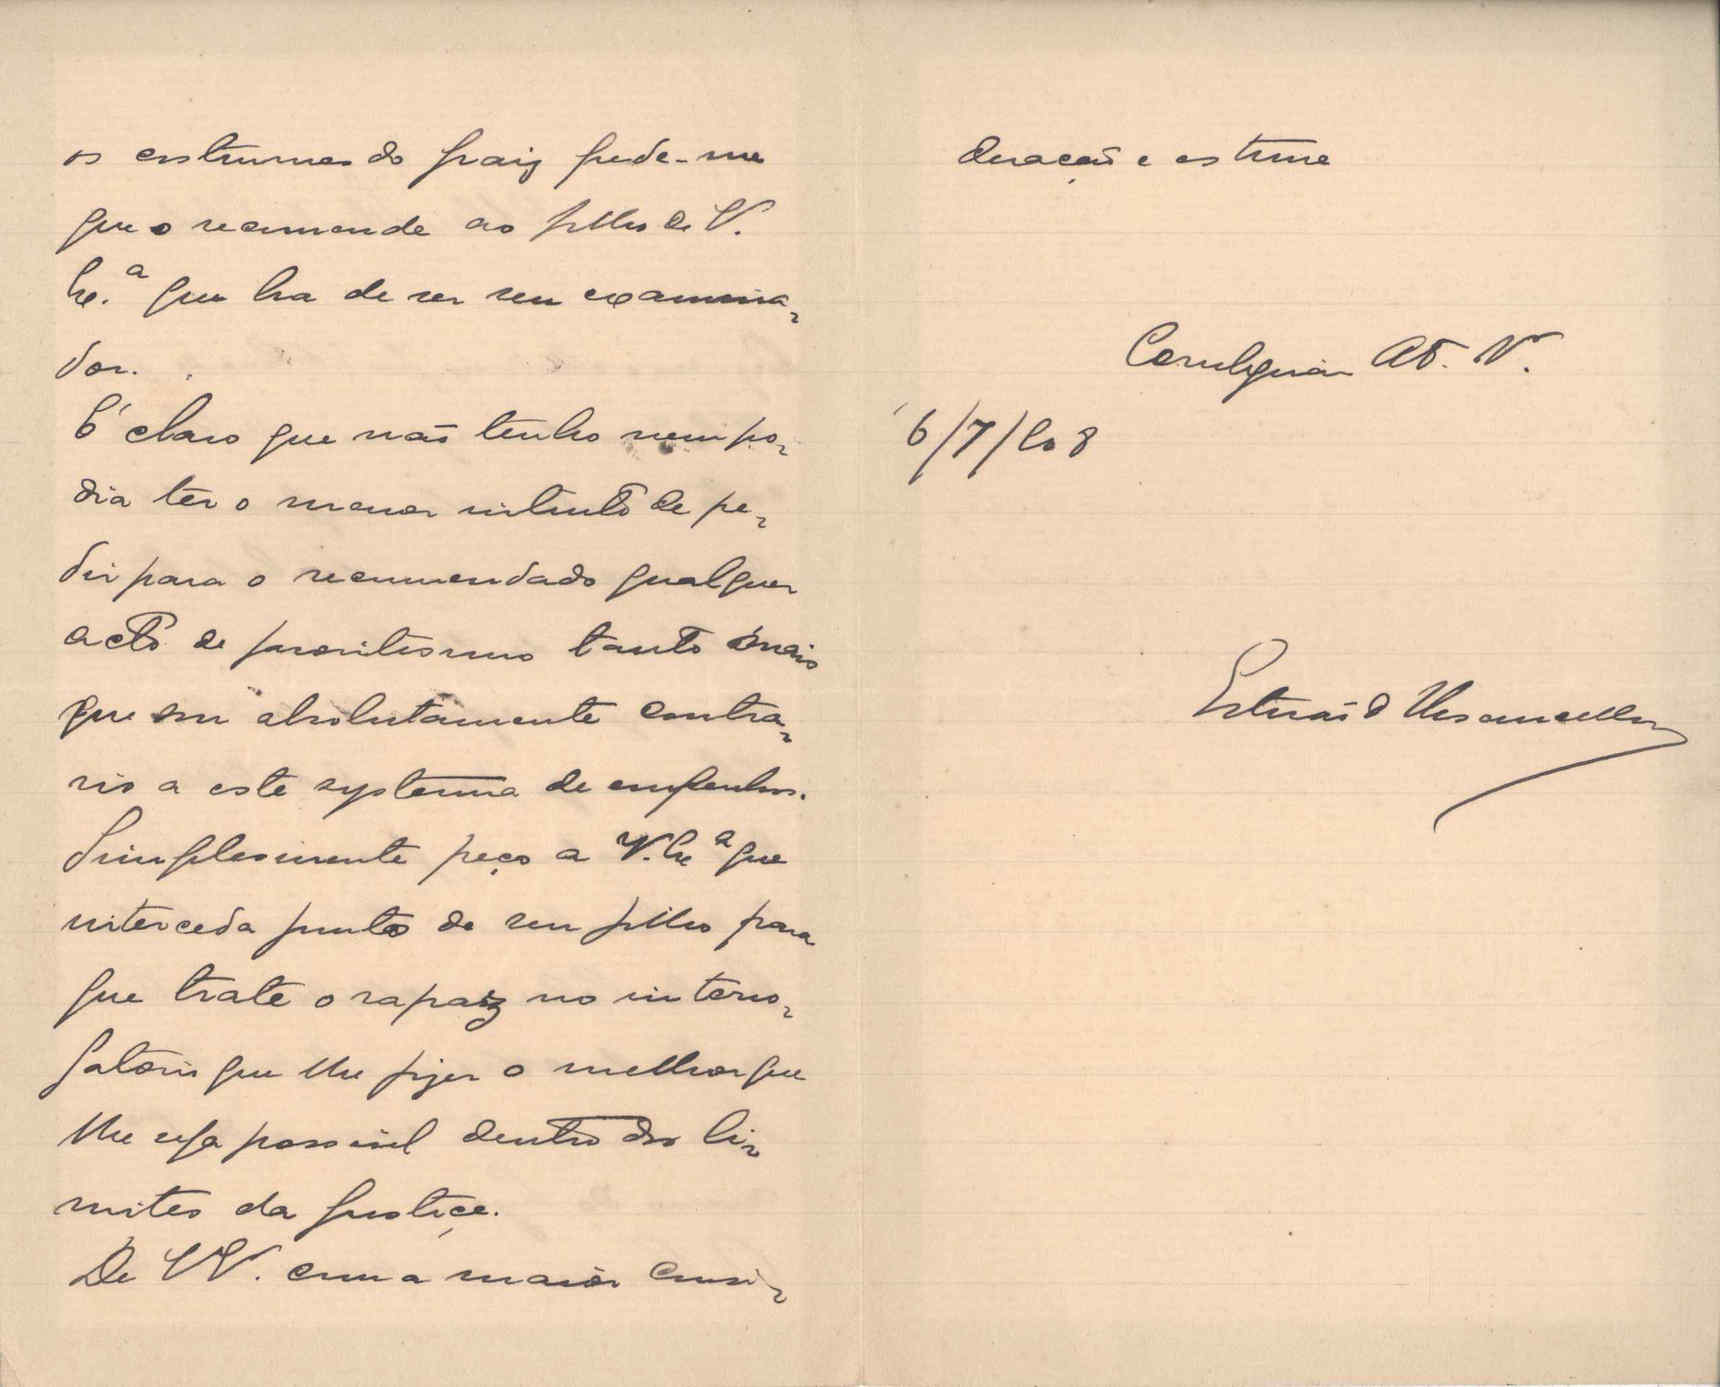 os costumes do paiz pede-me
que o recommende ao filho de V.
Ex.ª que ha de ser seu examina-
dor.
É claro que não tenho nem po-
dia ter o menor intuito de pe-
dir para o recommendado qualquer
acto de favoritismo tanto mais
que sou absolutamente contra-
rio a este systema de empenhos.
Simplesmente peço a V. Ex.ª que
interceda junto de seu filho para
que trate o rapaz no interro-
gatorio que lhe fizer o melhor que
lhe seja possivel dentro dos li-
mites da justiça.
De V. com a maior consi-
deração e estima
Correligion. At. V.
6/7/908
Estevão Vasconcellos